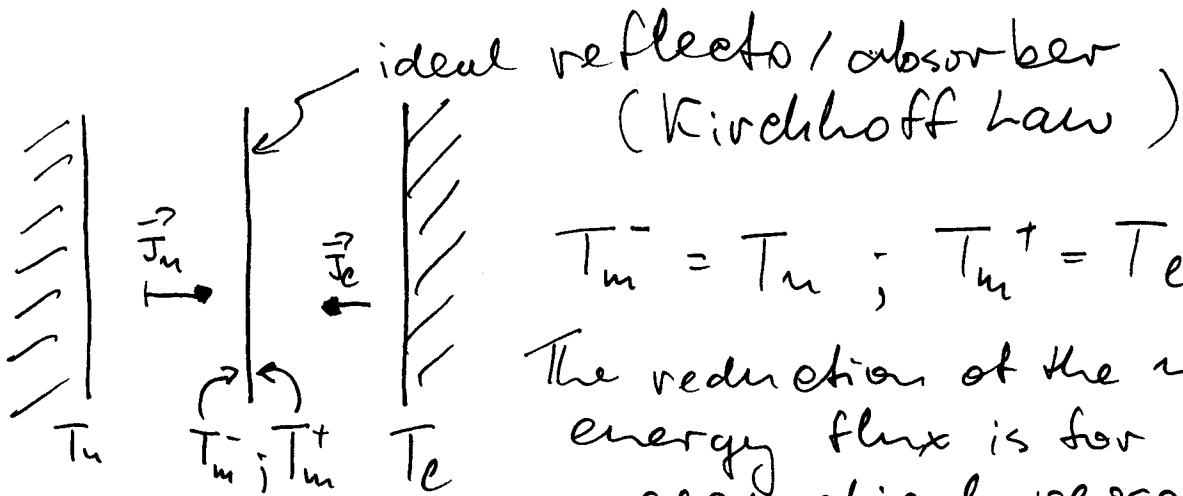 ideal reflecto/absorber
(Kirchhoff Law)
J⃗u
J⃗e
Tm⁻ = Tu ; Tm⁺ = Te
The reduction of the
energy flux is for
Tu Tm⁻ ; Tm⁺ Te